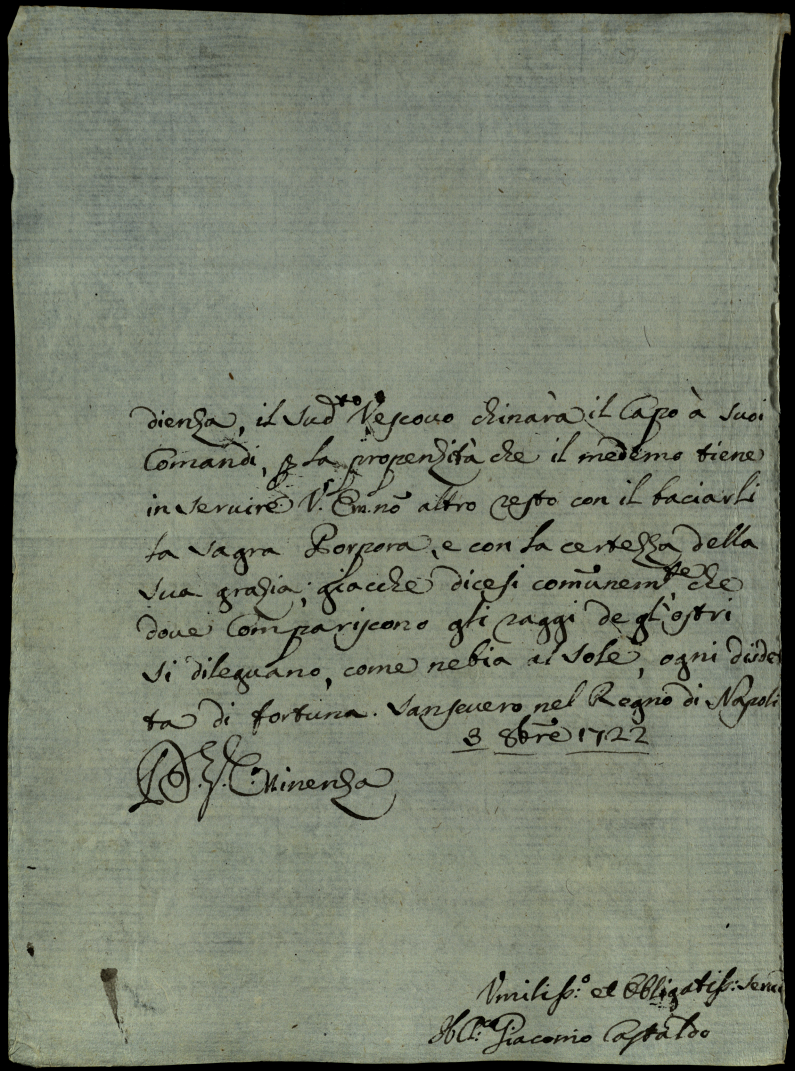 dienza, il sud.to Vescovo chinarà il Capo à suoi
Comandi, p la propenzità che il medemo tiene
in servire V.ra Em. nō altro resto con il baciarli
la sagra Porpora, e con la certezza della
sua grazia; giacche dicesi comunem.te che
dove Compariscono gli raggi de gl'ostri
si dileguano, come nebia al sole, ogni disdet
ta di fortuna. Sansevero nel Regno di Napoli
3 8bre 1722
D. V. Eminenza
Vmiliss.o et Obligatiss: Serv
Giacomo Castaldo